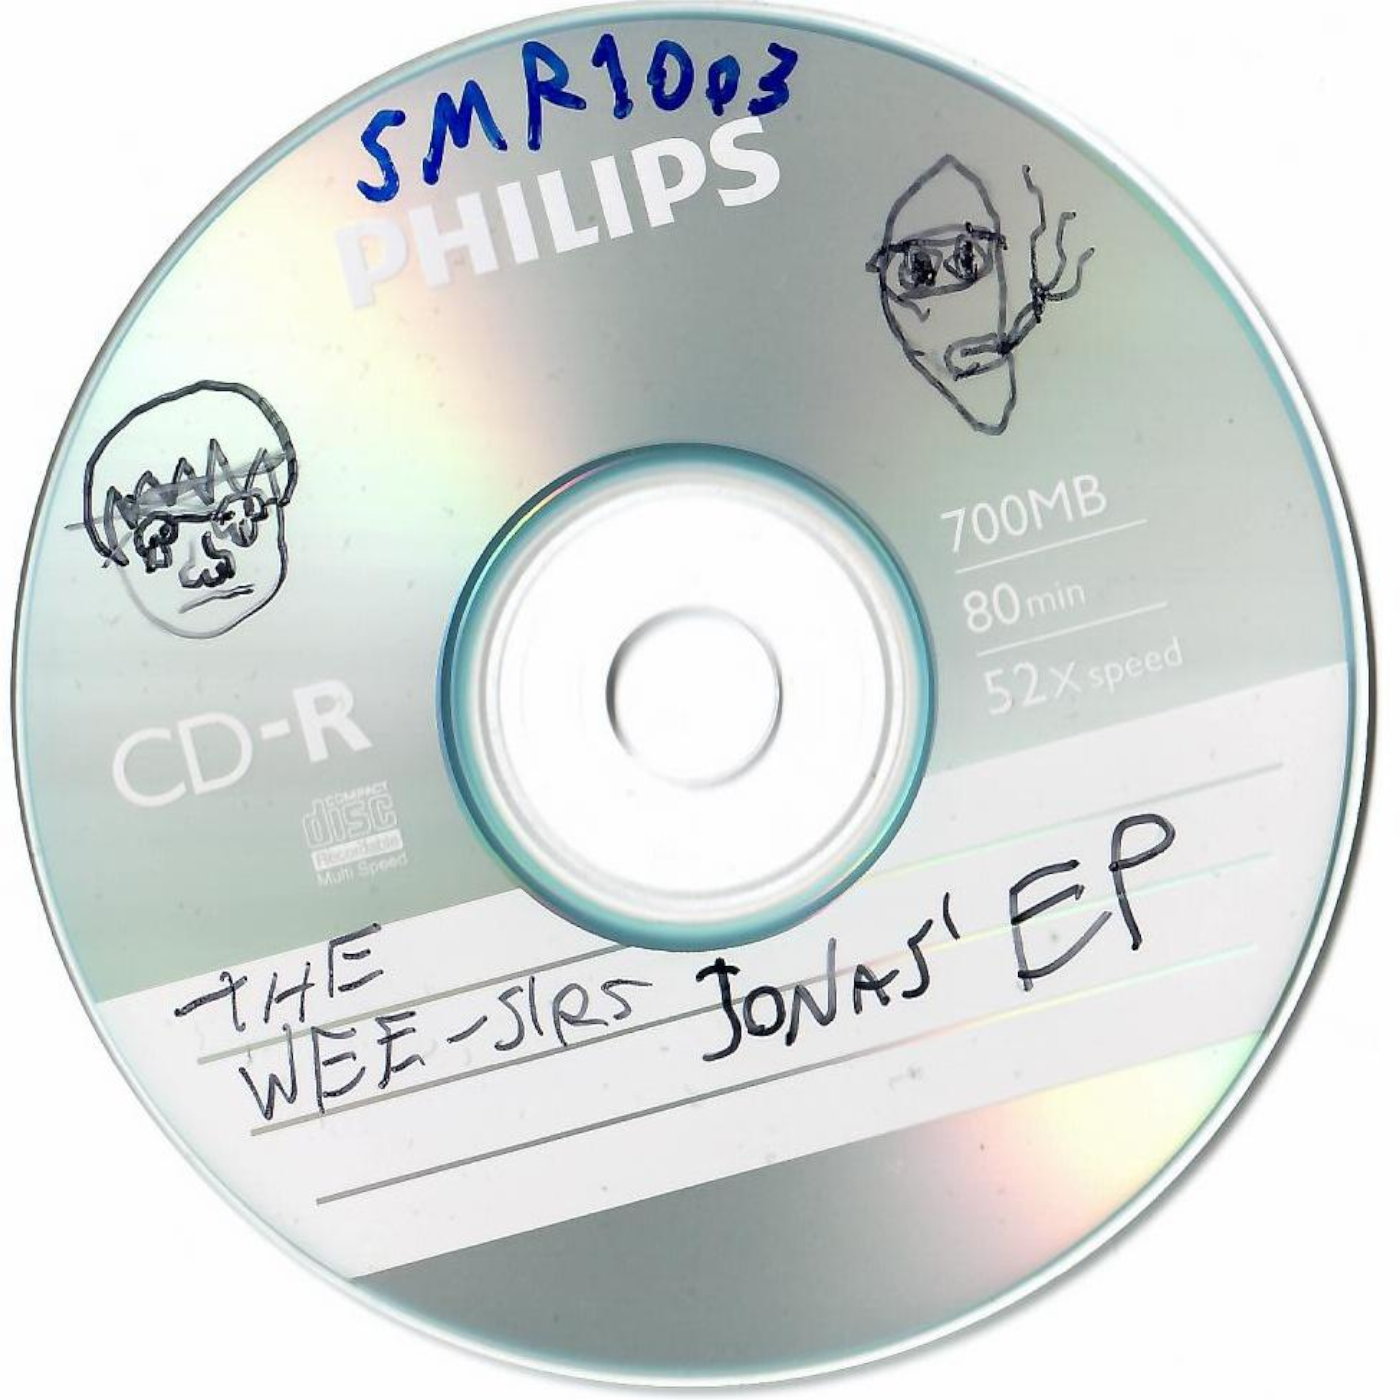 SMR1003
PHILIPS
700MB
80min
52x speed
CD-R
COMPACT
disc
Recordable
Multi Speed
THE
WEE-SIRS JONAS' EP